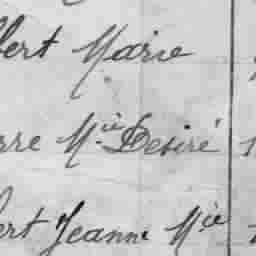 bert Marie
rre Mie Desiré
ert Jeanne Mie